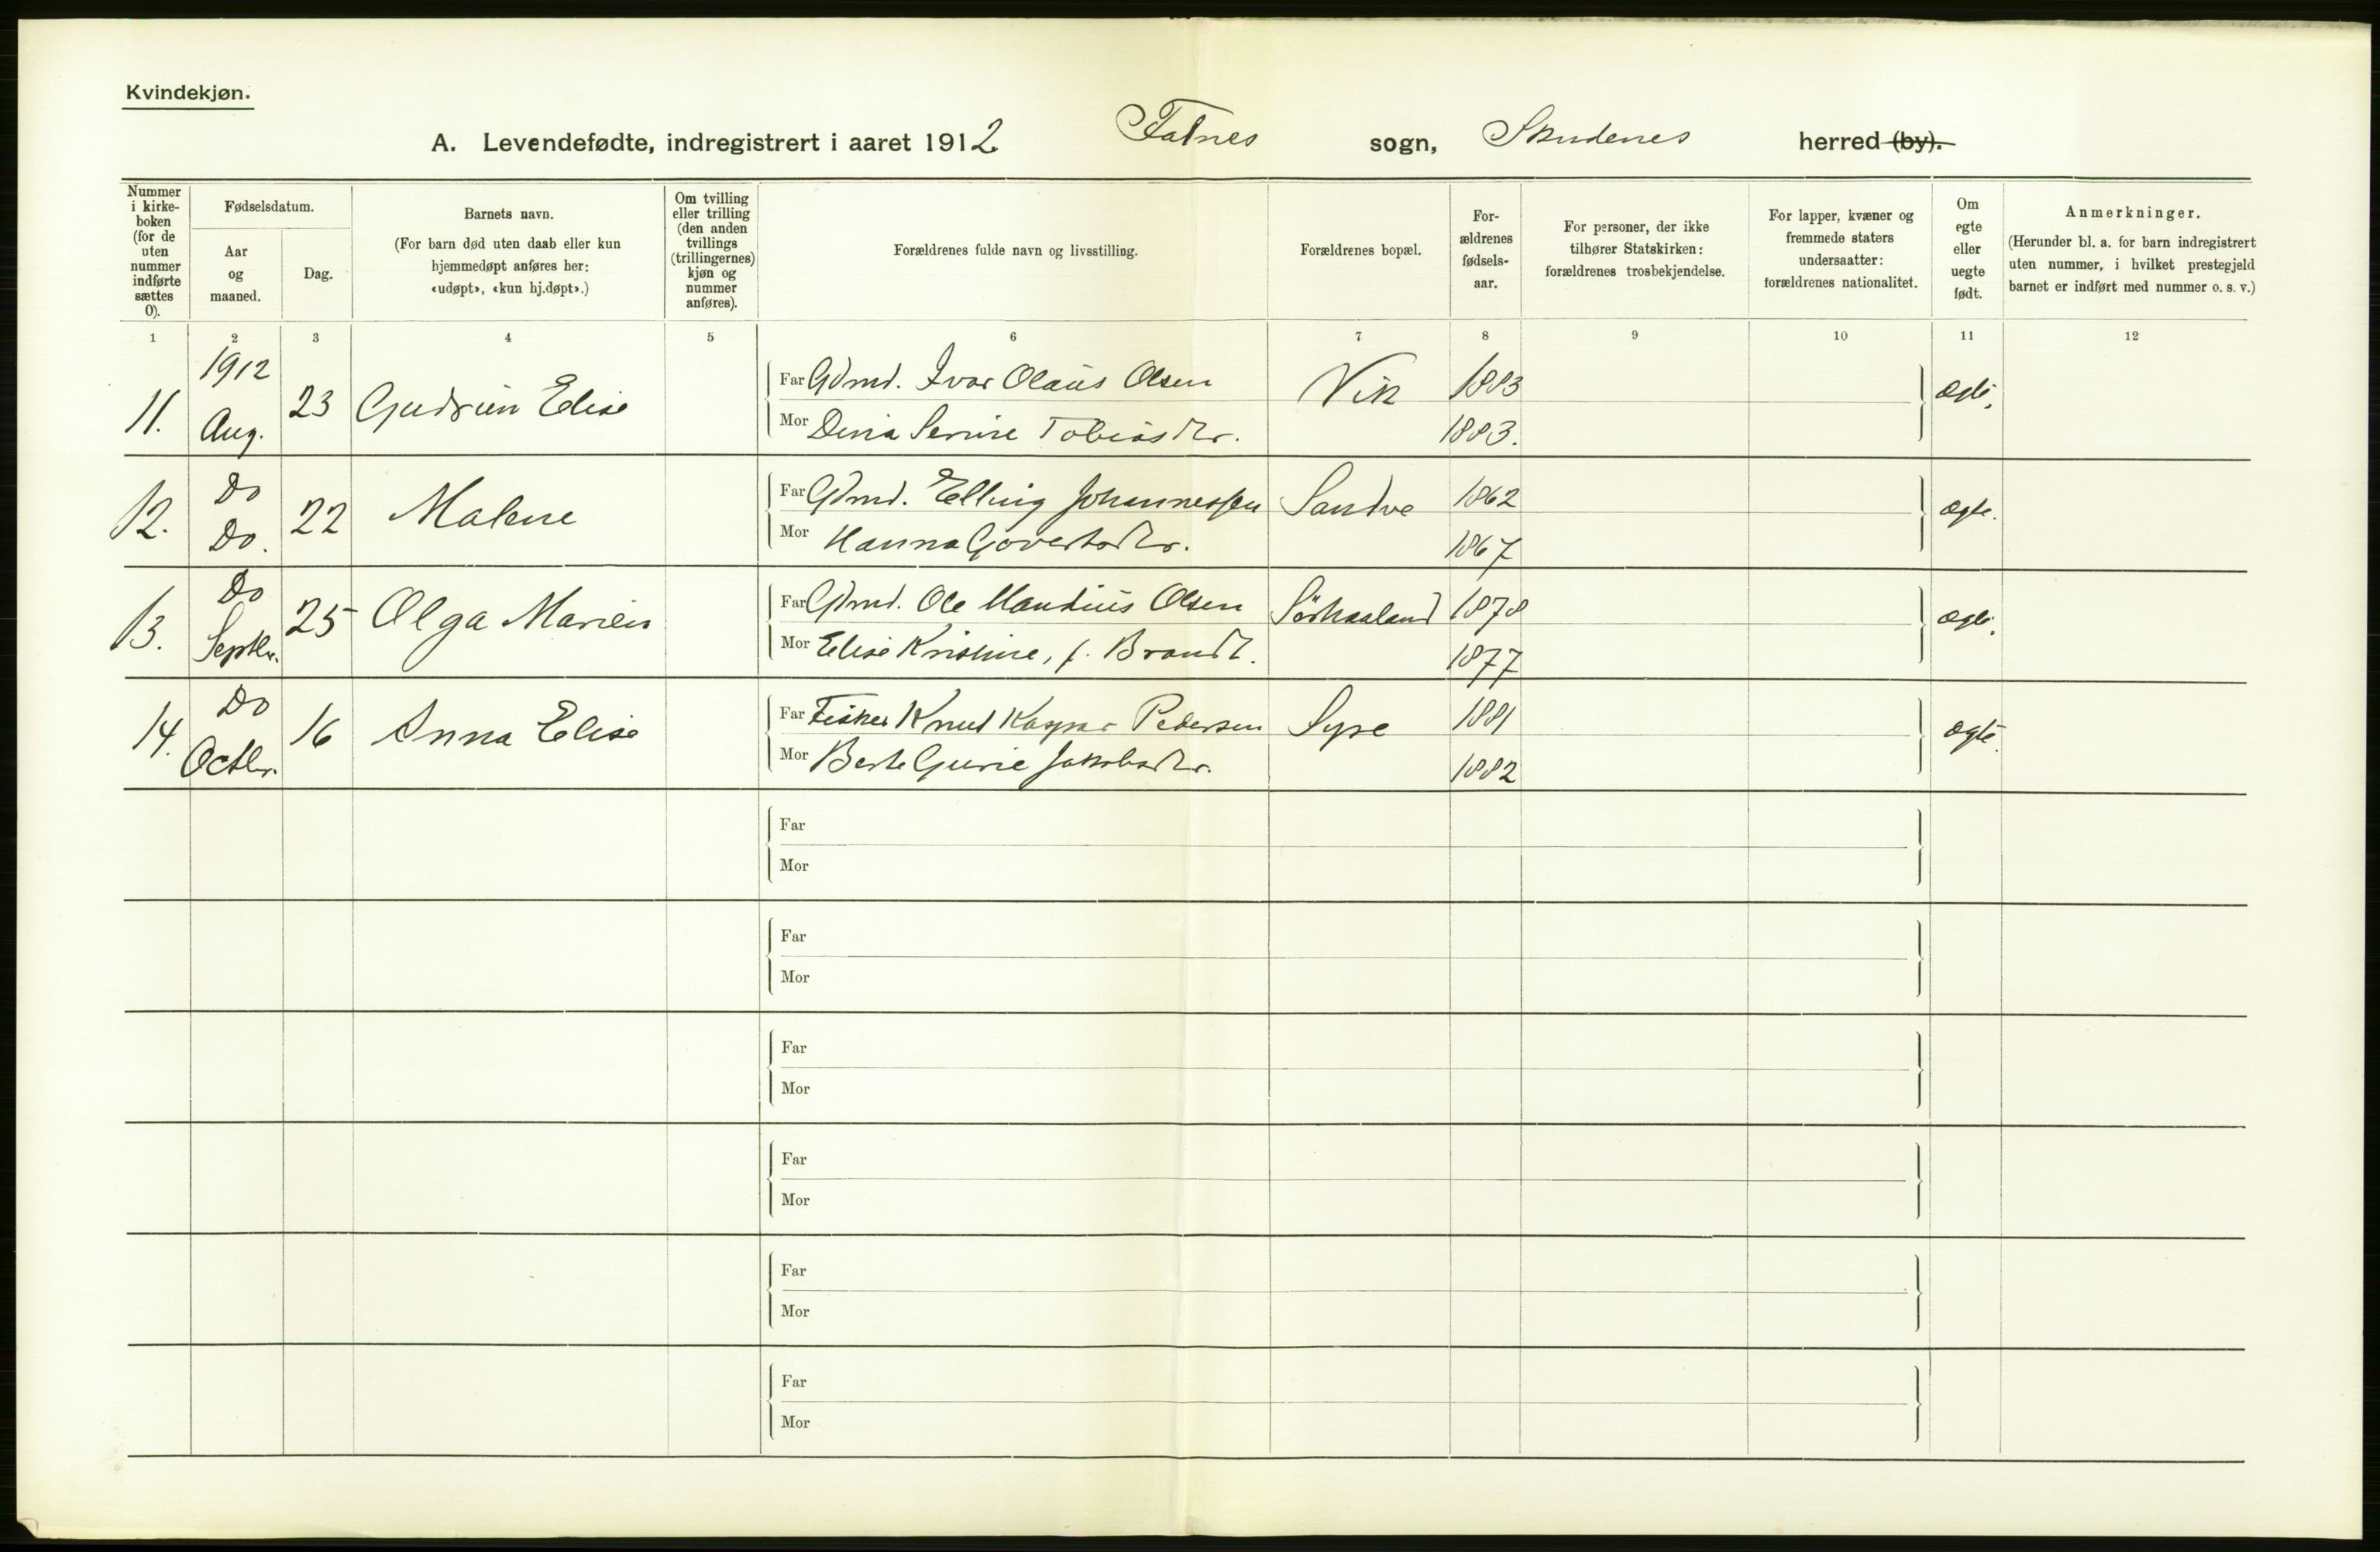 Kvindekjøn.
A. Levendefødte, indregistrert i aaret 1912 Falnes sogn, Skudenes herred (by).
Nummer i kirke-boken (for de uten nummer indførte sættes 0).
Fødselsdatum.
Aar og maaned.
Dag.
Barnets navn.
(For barn død uten daab eller kun hjemmedøpt anføres her: «udøpt», «kun hj.døpt».)
Om tvilling eller trilling (den anden tvillings (trillingernes) kjøn og nummer anføres).
Forældrenes fulde navn og livsstilling.
Forældrenes bopæl.
For-ældrenes fødsels-aar.
For personer, der ikke tilhører Statskirken: forældrenes trosbekjendelse.
For lapper, kvæner og fremmede staters undersaatter: forældrenes nationalitet.
Om egte eller uegte født.
Anmerkninger.
(Herunder bl. a. for barn indregistrert uten nummer, i hvilket prestegjeld barnet er indført med nummer o. s. v.)
1 2 3 4 5 6 7 8 9 10 11 12
11. 1912 Aug. 23 Gudrun Elise Far Gdmd. Ivar Olaus Olsen Vik 1883 ægte.
Mor Dina Serine Tobiasdtr. 1883.
12. Do Do. 22 Malene Far Gdmd. Elling Johannessen Sandve 1862 ægte.
Mor Hanna Govertsdtr. 1867
13. Do Septbr. 25 Olga Marien Far Gdmd. Ole Mandius Olsen Sørhaaland 1878 ægte.
Mor Elise Kristine, f. Brandt. 1877
14. Do Octbr. 16 Anna Elise Far Fisker Knut Kaspar Pedersen Syre 1881 ægte.
Mor Berte Gurie Jakobsdtr. 1882
Far
Mor
Far
Mor
Far
Mor
Far
Mor
Far
Mor
Far
Mor